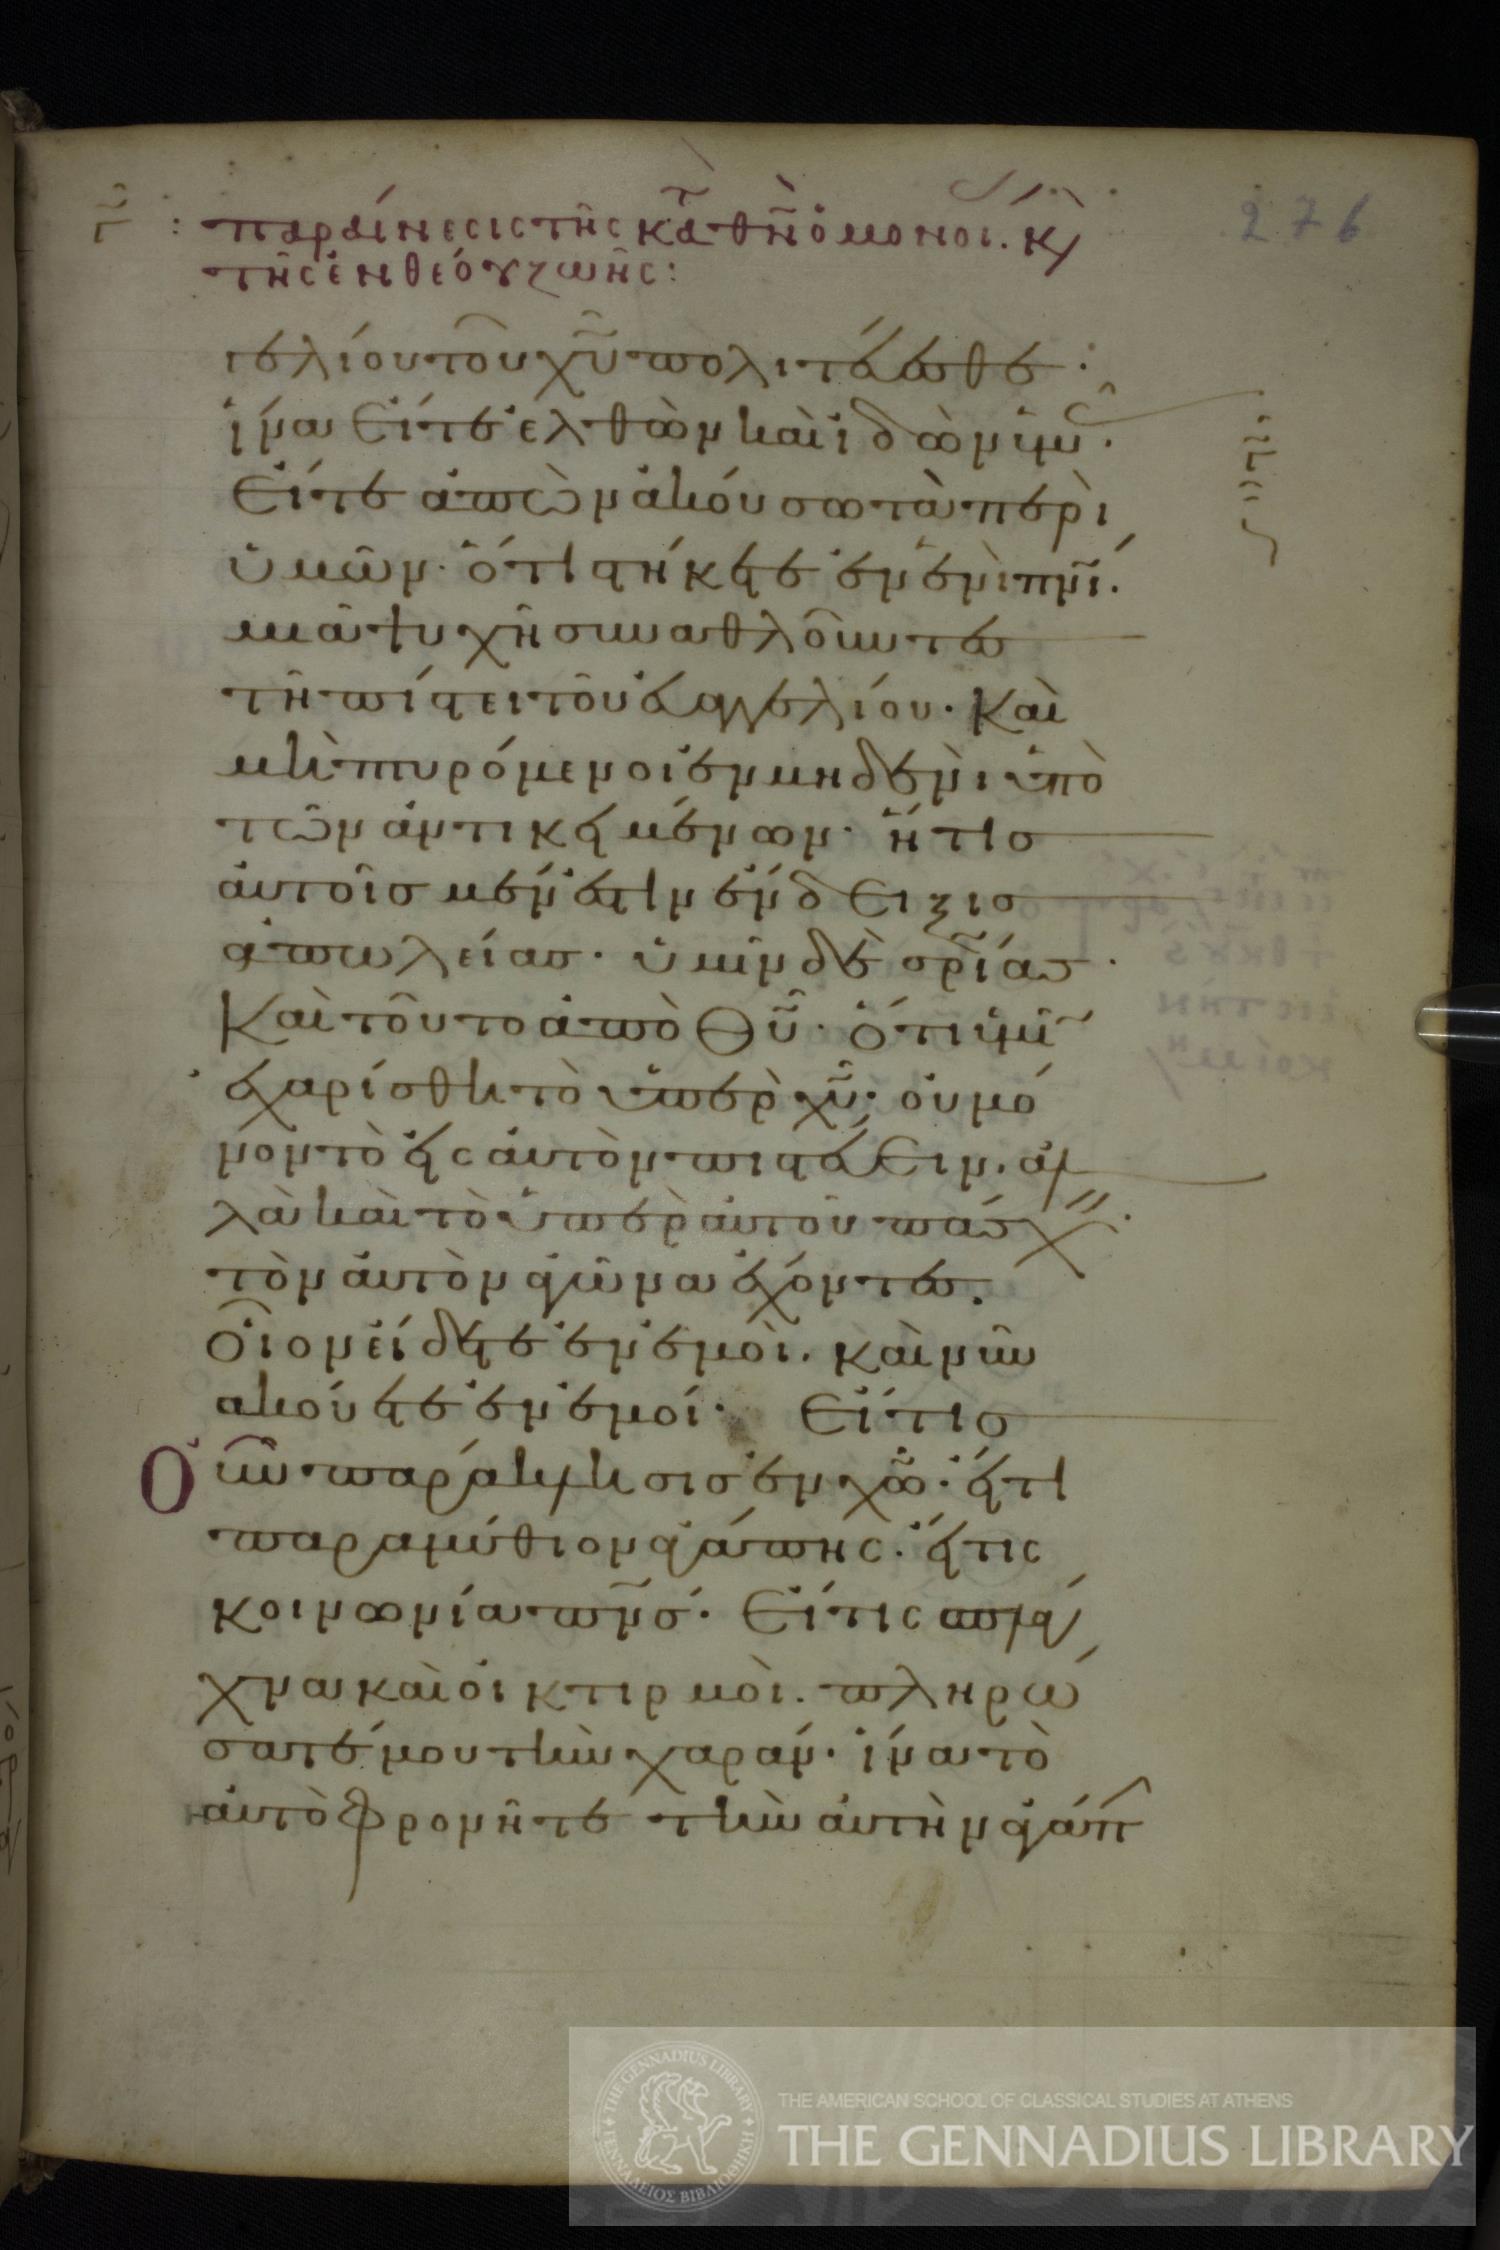 276
: παραίνεσις τῆς κατὰ θν̄ ὁμονοί. κὶ
τῆς ἐνθέου ζωῆς :
γελίου τοῦ χῦ πολιτεύεσθε :
ἵνα εἴτε ἐλθὼν καὶ ἰδὼν ὑμ ·
εἴτε ἀπὼν ἀκούσω τὰ περὶ
ὑμῶν · ὅτι στήκετε ἐν ἑνὶ πνί .
μιᾶ ψυχῆ συναθλοῦντες
τῆ πίστει τοῦ εὐαγγελίου · καὶ
μὴ πτυρόμενοι ἐν μηδενὶ ὑπὸ
τῶν ἀντικειμένων · ἥτις
αὐτοῖς μέν ἐστιν ἔνδειξις
ἀπωλείας · ὑμῖν δὲ σρίας ·
καὶ τοῦτο ἀπὸ θῦ · ὅτι ὑμῖ
ἐχαρίσθη τὸ ὑπὲρ χῦ · οὐ μό
νον τὸ εἰς αὐτὸν πιστεύειν · ἀλ
λὰ καὶ τὸ ὑπὲρ αὐτοῦ πάσχ ·
τὸν αὐτὸν ἀγῶνα ἔχοντες .
οἷον εἴδετε ἐν ἐμοὶ . καὶ νῦν
ἀκούετε ἐν ἐμοί · εἴ τις
Οὖν παράκλησις ἐν χῶ · εἴ τι
παραμύθιον ἀγάπης · εἴ τις
κοινωνία πνσ · εἴ τις σπλά
χνα καὶ οἰκτιρμοὶ . πληρώ
σατέ μου τὴν χαράν · ἵνα τὸ
αὐτὸ φρονῆτε τὴν αὐτὴν ἀγάπ
THE GENNADIUS LIBRARY
ΓΕΝΝΑΔΕΙΟΣ ΒΙΒΛΙΟΘΗΚΗ
THE AMERICAN SCHOOL OF CLASSICAL STUDIES AT ATHENS
THE GENNADIUS LIBRARY